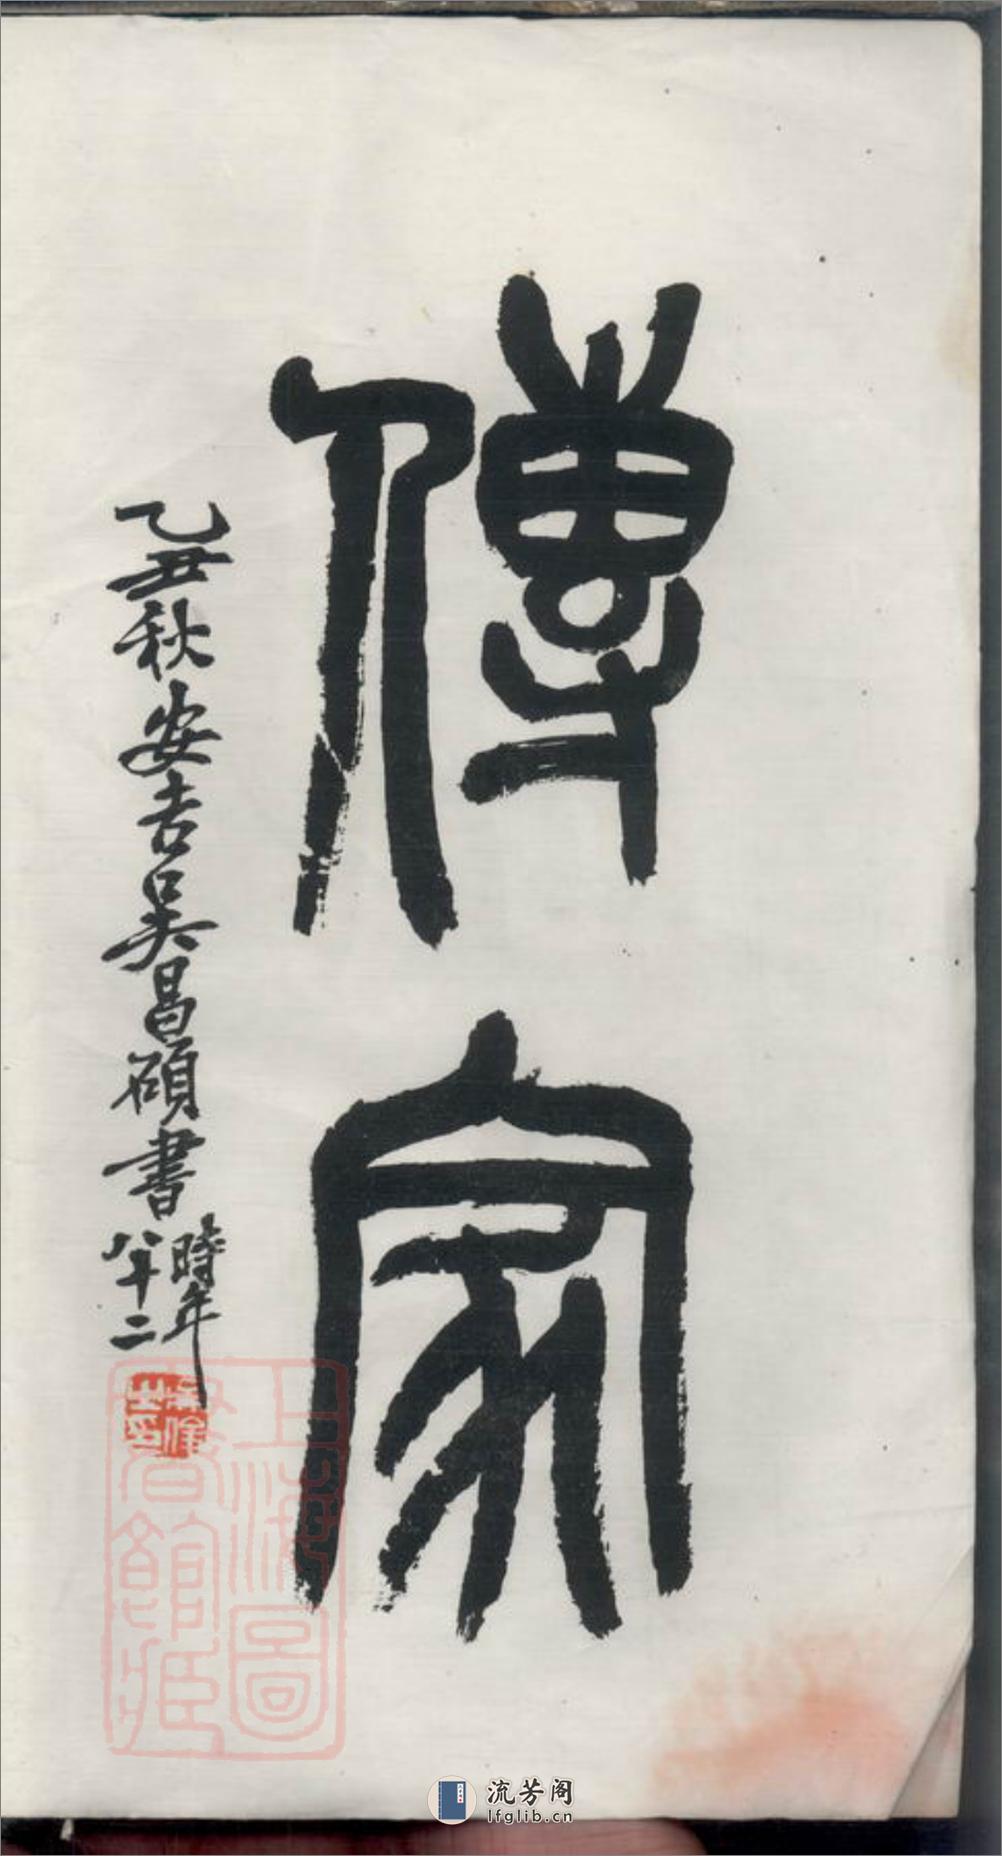 傳家
乙丑秋安吉吳昌碩書時年
八十二
吳俊之印
上海圖
書館藏
流芳阁
lfglib.cn